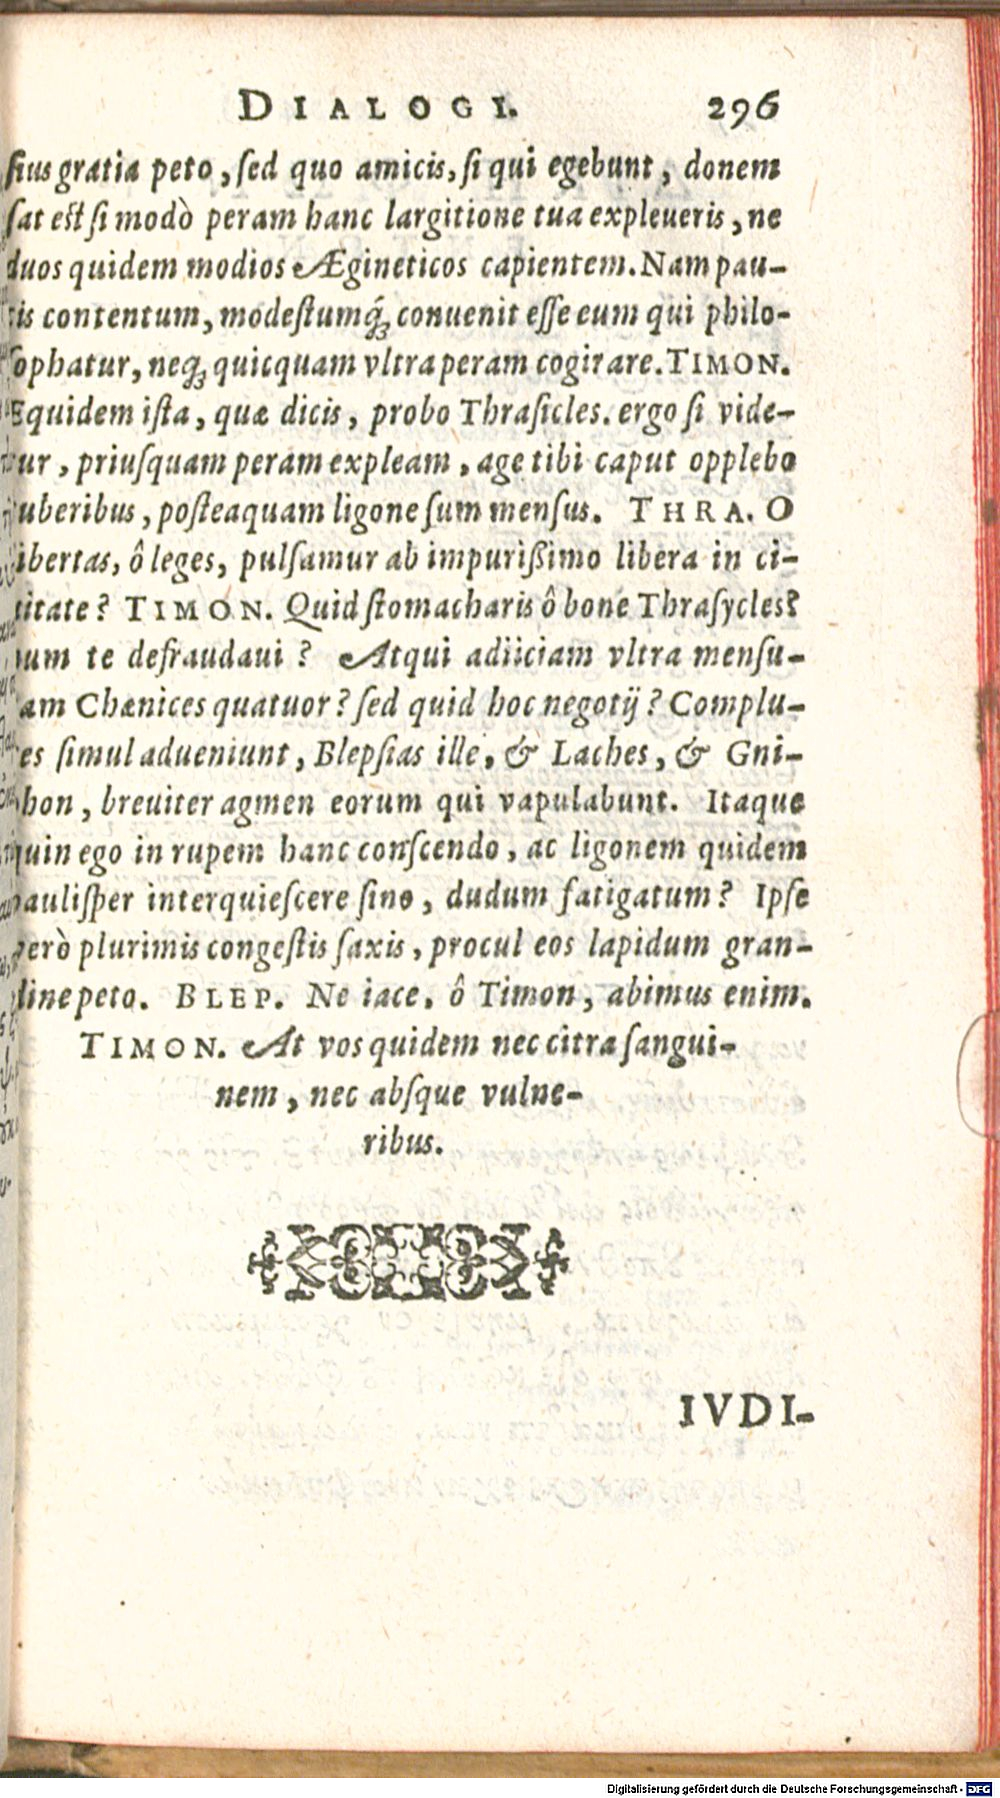 DIALOGI. 296
ſius gratia peto, ſed quo amicis, ſi qui egebunt, donem
ſat eſt ſi modò peram hanc largitione tua expleueris, ne
duos quidem modios Ægineticos capientem. Nam pau-
is contentum, modeſtumq́; conuenit eſſe eum qui philo-
ſophatur, neq; quicquam vltra peram cogitare. TIMON.
Equidem iſta, quæ dicis, probo Thraſicles. ergo ſi vide-
ur, priuſquam peram expleam, age tibi caput opplebo
uberibus, poſteaquam ligone ſum menſus. THRA. O
ibertas, ô leges, pulſamur ab impurißimo libera in ci-
uitate? TIMON. Quid ſtomacharis ô bone Thraſycles?
num te defraudaui? Atqui adiiciam vltra menſu-
am Chænices quatuor? ſed quid hoc negotij? Complu-
es ſimul adueniunt, Blepſias ille, & Laches, & Gni-
hon, breuiter agmen eorum qui vapulabunt. Itaque
quin ego in rupem hanc conſcendo, ac ligonem quidem
pauliſper interquieſcere ſino, dudum fatigatum? Ipſe
verò plurimis congeſtis ſaxis, procul eos lapidum gran-
dine peto. BLEP. Ne iace, ô Timon, abimus enim.
TIMON. At vos quidem nec citra ſangui-
nem, nec abſque vulne-
ribus.
IVDI-
Digitalisierung gefördert durch die Deutsche Forschungsgemeinschaft - DFG